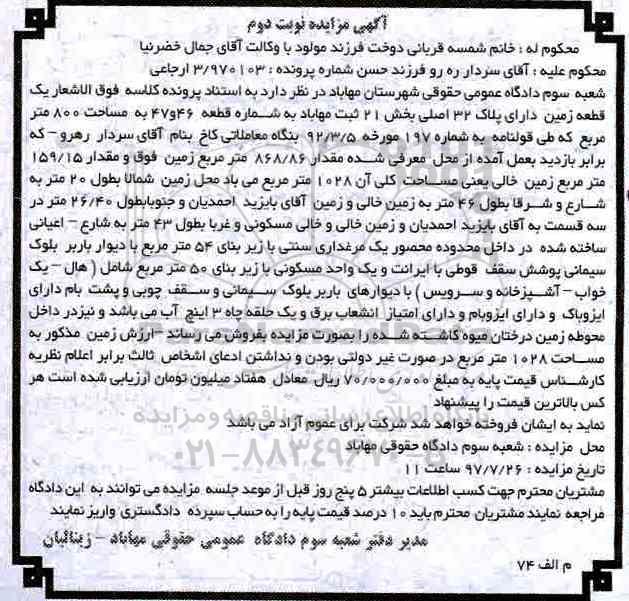 آگهی مزایده نوبت دوم
محکوم له : خانم شمسه قربانی دوخت فرزند مولود با وکالت آقای جمال خضرنیا
محکوم علیه : آقای سردار ره رو فرزند حسن شماره پرونده : ۳/۹۷۰۱۰۳ ارجاعی
شعبه سوم دادگاه عمومی حقوقی شهرستان مهاباد در نظر دارد به استناد پرونده کلاسه فوق الاشعار یک
قطعه زمین دارای پلاک ۳۲ اصلی بخش ۲۱ ثبت مهاباد به شماره قطعه ۴۶و۴۷ به مساحت ۸۰۰ متر
مربع که طی قولنامه به شماره ۱۹۷ مورخه ۹۲/۳/۵ بنگاه معاملاتی کاخ بنام آقای سردار رهرو – که
برابر بازدید بعمل آمده از محل معرفی شده مقدار ۸۶۸/۸۶ متر مربع زمین فوق و مقدار ۱۵۹/۱۵
متر مربع زمین خالی یعنی مساحت کلی آن ۱۰۲۸ متر مربع می باد محل زمین شمالا بطول ۲۰ متر به
شارع و شرقا بطول ۴۶ متر به زمین خالی و زمین آقای بایزید احمدیان و جنوبابطول ۲۶/۴۰ متر در
سه قسمت به آقای بایزید احمدیان و زمین خالی و خالی مسکونی و غربا بطول ۴۳ متر به شارع – اعیانی
ساخته شده در داخل محدوده محصور یک مرغداری سنتی با زیر بنای ۵۴ متر مربع با دیوار باربر بلوک
سیمانی پوشش سقف قوطی با ایرانت و یک واحد مسکونی با زیر بنای ۵۰ متر مربع شامل ( هال – یک
خواب – آشپزخانه و سرویس ) با دیوارهای باربر بلوک سیمانی و سقف چوبی و پشت بام دارای
ایزوباک و دارای ایزوبام و دارای امتیاز انشعاب برق و یک حلقه چاه ۳ اینچ آب می باشد و نیزدر داخل
محوطه زمین درختان میوه کاشته شده را بصورت مزایده بفروش می رساند – ارزش زمین مذکور به
مساحت ۱۰۲۸ متر مربع در صورت غیر دولتی بودن و نداشتن ادعای اشخاص ثالث برابر اعلام نظریه
کارشناس قیمت پایه به مبلغ ۷۰/۰۰۰/۰۰۰ ریال معادل هفتاد میلیون تومان ارزیابی شده است هر
کس بالاترین قیمت را پیشنهاد
نماید به ایشان فروخته خواهد شد شرکت برای عموم آزاد می باشد
محل مزایده : شعبه سوم دادگاه حقوقی مهاباد
تاریخ مزایده : ۹۷/۷/۲۶ ساعت ۱۱
مشتریان محترم جهت کسب اطلاعات بیشتر ۵ پنج روز قبل از موعد جلسه مزایده می توانند به این دادگاه
مراجعه نمایند مشتریان محترم باید ۱۰ درصد قیمت پایه را به حساب سپرده دادگستری واریز نمایند
مدیر دفتر شعبه سوم دادگاه عمومی حقوقی مهاباد – زینالیان
م الف ۷۴